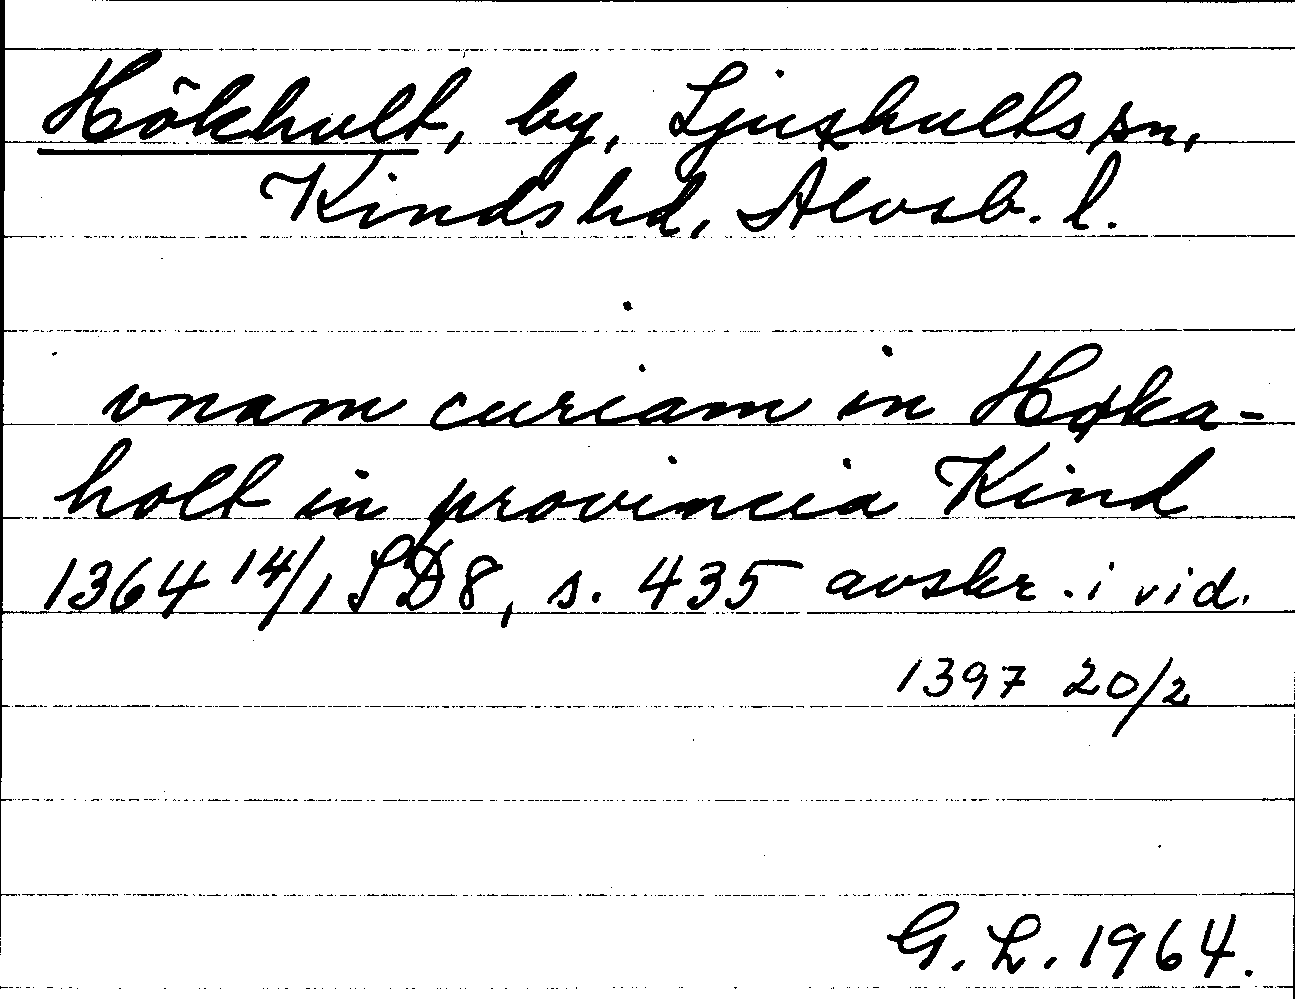 Hökhult, by, Ljushults sn,
Kinds hd, Älvsb. l.
vnam curiam in Høka-
holt in provincia Kind
1364 14/1 SD 8, s. 435 avskr. i vid.
1397 20/2
G. L. 1964.